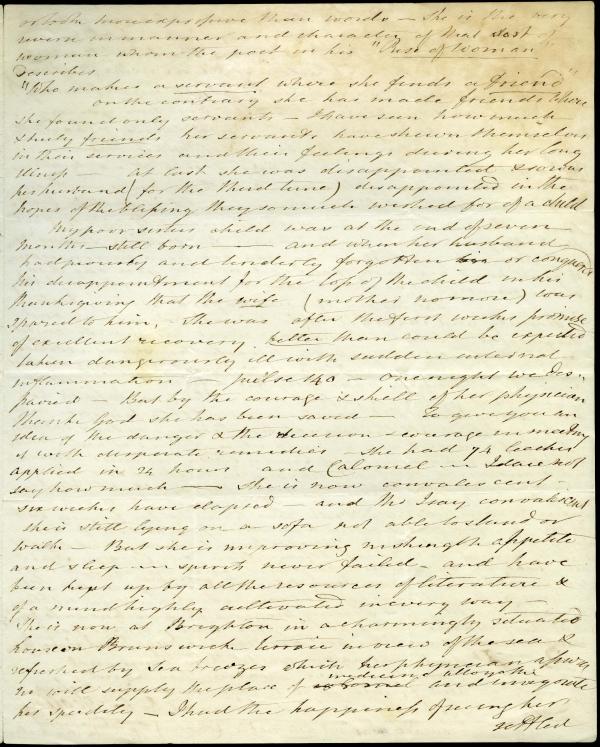 or looks more expressive than words — She is the very
reverse in manner and character of that sort of
woman whom the poet in his "Rise of Woman"
describes
"Who makes a servant where she finds a friend"
on the contrary she has made friends where
she found only servants — I have seen how much
& truly friends her servants have shewn themselves
in their services and their feelings during her long
illness — at last she was disappointed & so was
her husband (for the third time) disappointed in the
hopes of the blessing they so much wished for of a child
My poor sisters child was at the end of seven
months — still born — and when her husband
had piously and tenderly forgotten or conquered
his disappointment for the loss of the child in his
thanksgiving that the wife (mother no more) was
spared to him, — She was after the first weeks promise
of excellent recovery better than could be expected
taken dangerously ill with sudden internal
inflammation — pulse 140 — one night we des-
paired — But by the courage & skill of her physician
thank God she has been saved — To give you an
idea of the danger & the decision & courage in meeting
it with desperate remedies — she had 74 leeches
applied in 24 hours and Calomel — I dare not
say how much — She is now convalescent —
six weeks have elapsed — and tho I say convalescent
she is still lying on a sofa not able to stand or
walk — But she is improving in strength appetite
and sleep — spirits never failed — and have
been kept up by all the resources of literature &
of a mind highly cultivated in every way —
She is now at Brighton in a charmingly situated
house in Brunswick terrace in view of the sea &
refreshed by sea breezes which her physician assures
us will supply the place of medicine and invigorate
her speedily — I had the happiness of seeing her
settled